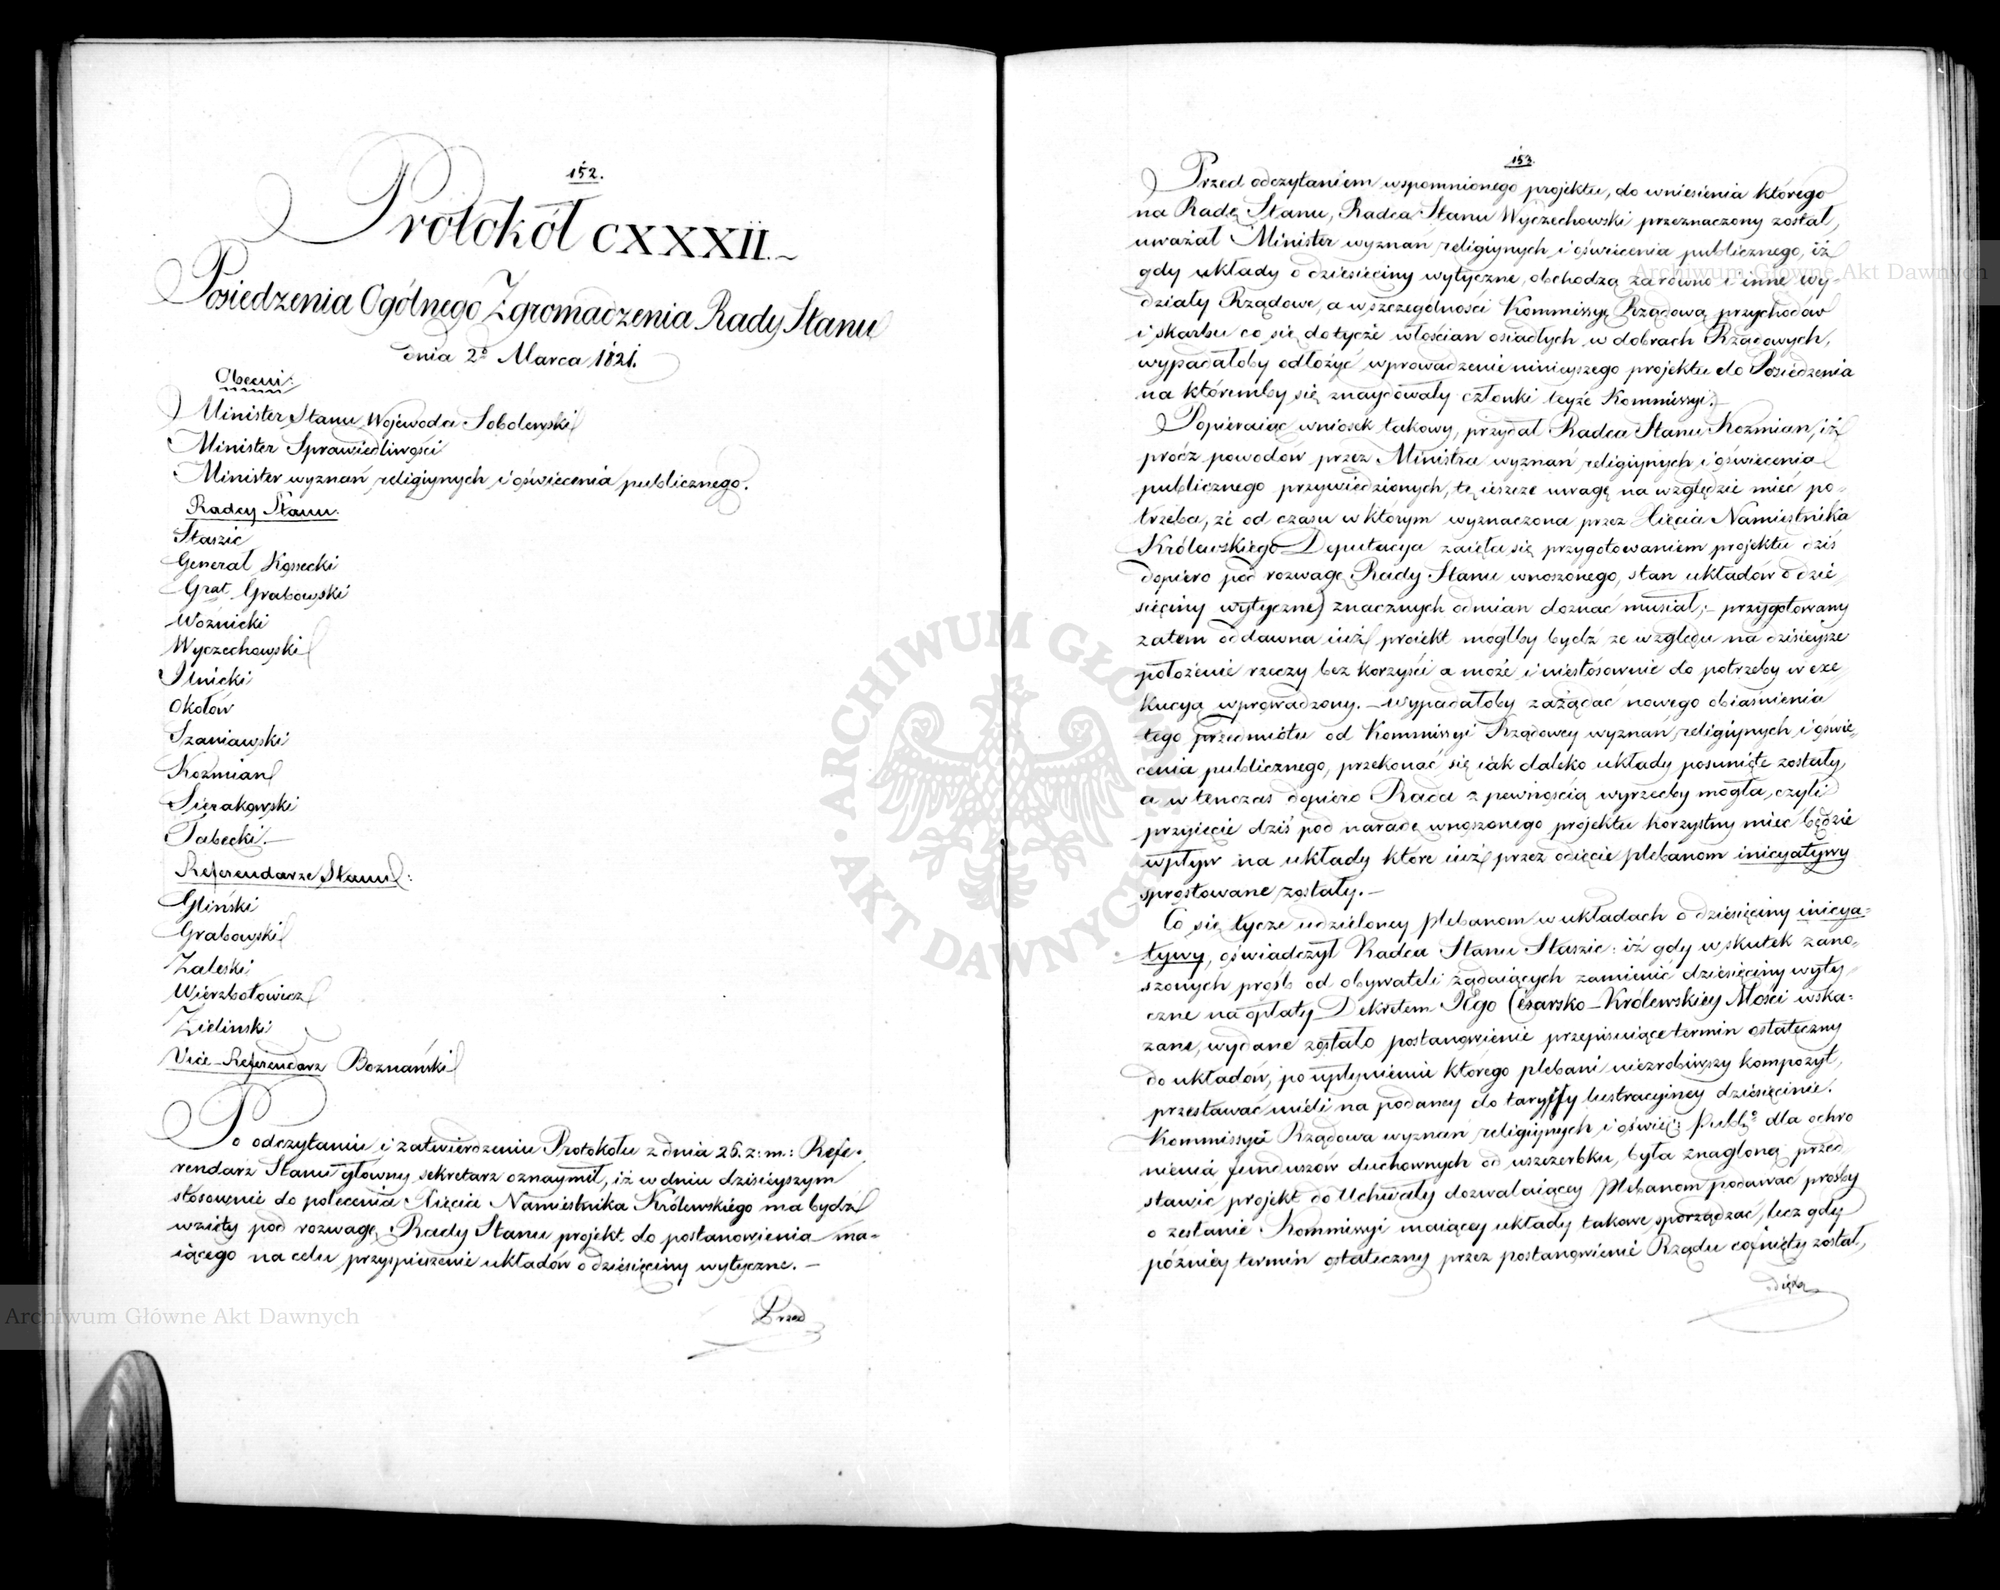 152.
Protokół CXXXII.~
Posiedzenia Ogólnego Zgromadzenia Rady Stanu
dnia 2º Marca 1821.
Obecni:
Minister Stanu Wojewoda Sobolewski
Minister Sprawiedliwości
Minister wyznań religiynych i oświecenia publicznego.
Radcy Stanu:
Staszic
Generał Kossecki
Grał Grabowski
Woźnicki
Wyczechowski
Ilnicki
Okołów
Szaniawski
Koźmian
Sierakowski
Tabecki.—
Referendarze Stanu:
Gliński
Grabowski
Zaleski
Wierzbołowicz
Zieliński
Vice-Referendarz Boznański
Po odczytaniu i zatwierdzeniu Protokołu z dnia 26. z: m: Refe-
rendarz Stanu główny sekretarz oznaymił, iż w dniu dzisieyszym
stosownie do polecenia Xięcia Namiestnika Królewskiego ma bydź
wzięty pod rozwagę Rady Stanu projekt do postanowienia ma-
iącego na celu przyspieszenie układów o dziesięciny wytyczne. —
Przed
153.
Przed odczytaniem wspomnionego projektu, do wniesienia którego
na Radę Stanu, Radca Stanu Wyczechowski przeznaczony został,
uważał Minister wyznań religiynych i oświecenia publicznego, iż
gdy układy o dziesięciny wytyczne, obchodzą zarówno i inne wy-
działy Rządowe, a w szczególności Kommissyę Rządową przychodów
i skarbu co się dotycze włościan osiadłych w dobrach Rządowych,
wypadałoby odłożyć wprowadzenie ninieyszego projektu do Posiedzenia
na którémby się znaydowały członki teyże Kommissyi.—
Popieraiąc wniosek takowy, przydał Radca Stanu Koźmian, iż
prócz powodów przez Ministra wyznań religiynych i oświecenia
publicznego przywiedzionych, tę ieszcze uwagę na względzie mieć po-
trzeba, że od czasu w którym wyznaczona przez Xięcia Namiestnika
Królewskiego Deputacya zaięła się przygotowaniem projektu dziś
dopiero pod rozwagę Rady Stanu wnoszonego, stan układów o dzie-
sięciny wytyczne) znacznych odmian doznać musiał; – przygotowany
zatem oddawna iuż projekt mógłby bydź ze względu na dzisieysze
położenie rzeczy bez korzyści a może i niestosownie do potrzeby w exe-
kucyą wprowadzony. — wypadałoby zażądać nowego obiaśnienia
tego przedmiotu od Kommissyi Rządowey wyznań religiynych i oświe-
cenia publicznego, przekonać się iak daleko układy posunięte zostały,
a wtenczas dopiero Rada z pewnością wyrzecby mogła, czyli
przyięcie dziś pod naradę wnoszonego projektu korzystny mieć będzie
wpływ na układy które iuż przez odięcie plebanom inicyatywy
sprostowane zostały.—
Co się tycze udzieloney plebanom w układach o dziesięciny inicya-
tywy, oświadczył Radca Stanu Staszic: iż gdy w skutek zano-
szonych prośb od obywateli żądaiących zamienić dziesięciny wyty-
czne na opłaty Dekretem JEgo Cesarsko-Królewskiey Mości wska-
zane, wydane zostało postanowienie przepisuiące termin ostateczny
do układów, po upłynieniu którego plebani niezrobiwszy kompozyt,
przestawać mieli na podaney do taryffy lustracyiney dziesięcinie.
Kommissya Rządowa wyznań religiynych i oświec: Publº dla ochro
nienia funduszów duchownych od uszczerbku, była znagloną przed-
stawić projekt do Uchwały dozwalaiącey Plebanom podawać prośby
o zesłanie Kommissyi maiącey układy takowe sporządzać, lecz gdy
późniey termin ostateczny przez postanowienie Rządu cofnięty został,
Archiwum Główne Akt Dawnych
Archiwum Główne Akt Dawnych
ARCHIWUM GŁÓWNE AKT DAWNYCH